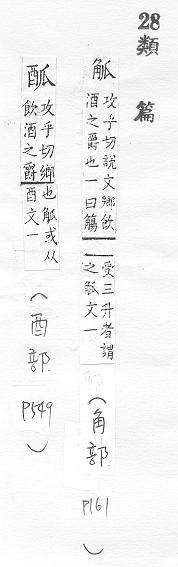 28
類篇
觚
攻乎切說文鄉飲
酒之爵也一曰觴
受三升者謂
之觚文一
(角部 P161)
𨠋
攻乎切鄉
飲酒之爵
也觚或从
酉文一
(酉部 P549)